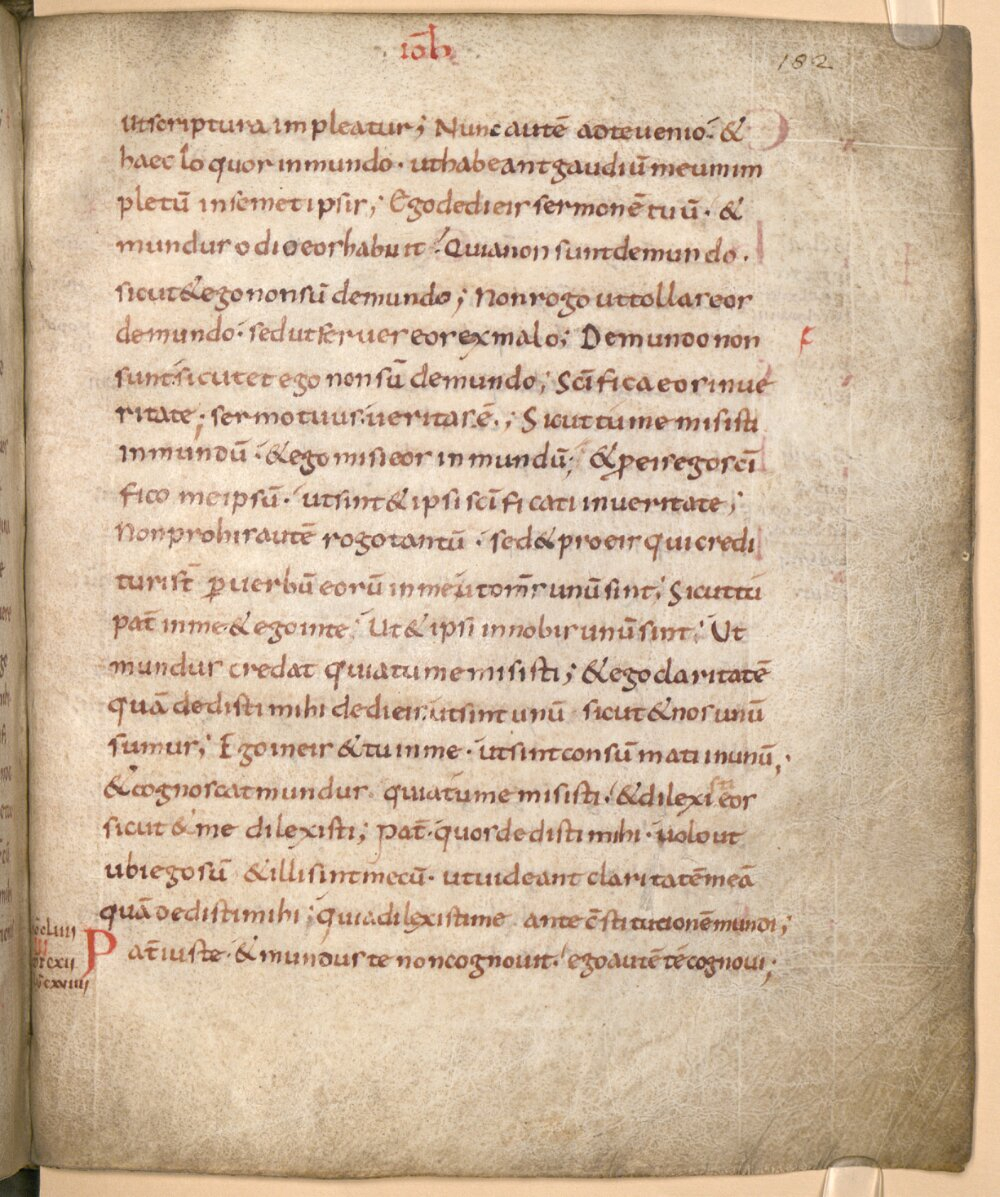 ioh̄
182
ut scriptura impleatur; Nunc autē ad te uenio. &
haec loquor in mundo · ut habeant gaudiū meum im
pletū in semetipsis; Ego dedi eis sermonē tuū · &
mundus odio eos habuit. Quia non sunt de mundo ·
sicut & ego non sū de mundo; Non rogo ut tollas eos
de mundo · sed ut serues eos ex malo; De mundo non
sunt sicut et ego non sū de mundo; Sc̄ifica eos in ue
ritate; sermo tuus ueritas ē; Sicut tu me misisti
in mundū · & ego misi eos in mundū; & p eis ego sc̄i
fico me ipsū · ut sint & ipsi sc̄ificati in ueritate;
Non pro his autē rogo tantū · sed & pro eis qui credi
turi sт̄ p uerbū eorū in me ut om̄s unū sint; Sicut tu
pat̄ in me & ego in te; Ut & ipsi in nobis unū sint; Ut
mundus credat quia tu me misisti; & ego claritatē
quā dedisti mihi dedi eis ut sint unū sicut & nos unū
sumus; Ego in eis & tu in me · ut sint consūmati in unū;
& cognoscat mundus quia tu me misisti · & dilexisti eos
sicut & me dilexisti; Pat̄ · quos dedisti mihi · uolo ut
ubi ego sū & illi sint mecū · ut uideant claritatē meā
quā dedisti mihi; quia dilexisti me ante c̄stitutionē mundi;
Pat̄ iuste · & mundus te non cognouit · ego autē te cognoui;